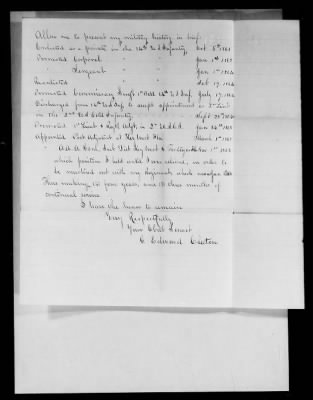 Allow me to present my military history in brief
Enlisted as a private in the 16th US Infantry Oct 5th 1861
Promoted Corporal " " " Jan 1st 186
" Sergeant " " " Jan 1st 186
Reenlisted " " " 17 1864
Promoted Commissary Sergt 1st Batt 16th US Inf July 17 1864
Discharged from 16th US Inf to accept appointment as 2nd Lieut
on the 2nd US Col'd Infantry Sept 1864
Promoted 1st Lieut & Regt Adjt in 2nd U.S.C.I. Jan 186
Appointed Post Adjutant at Key West Fla March 1st 1865
" A.A.A. Genl. Dist Key West & Tortugas 1st 1865
which position I held until I was relieved, in order to
be mustered out with my regiment
Thus making four years, and three months of
continual service
I have the honor to remain
Very Respectfully
Your Obdt Servant
C. Edward